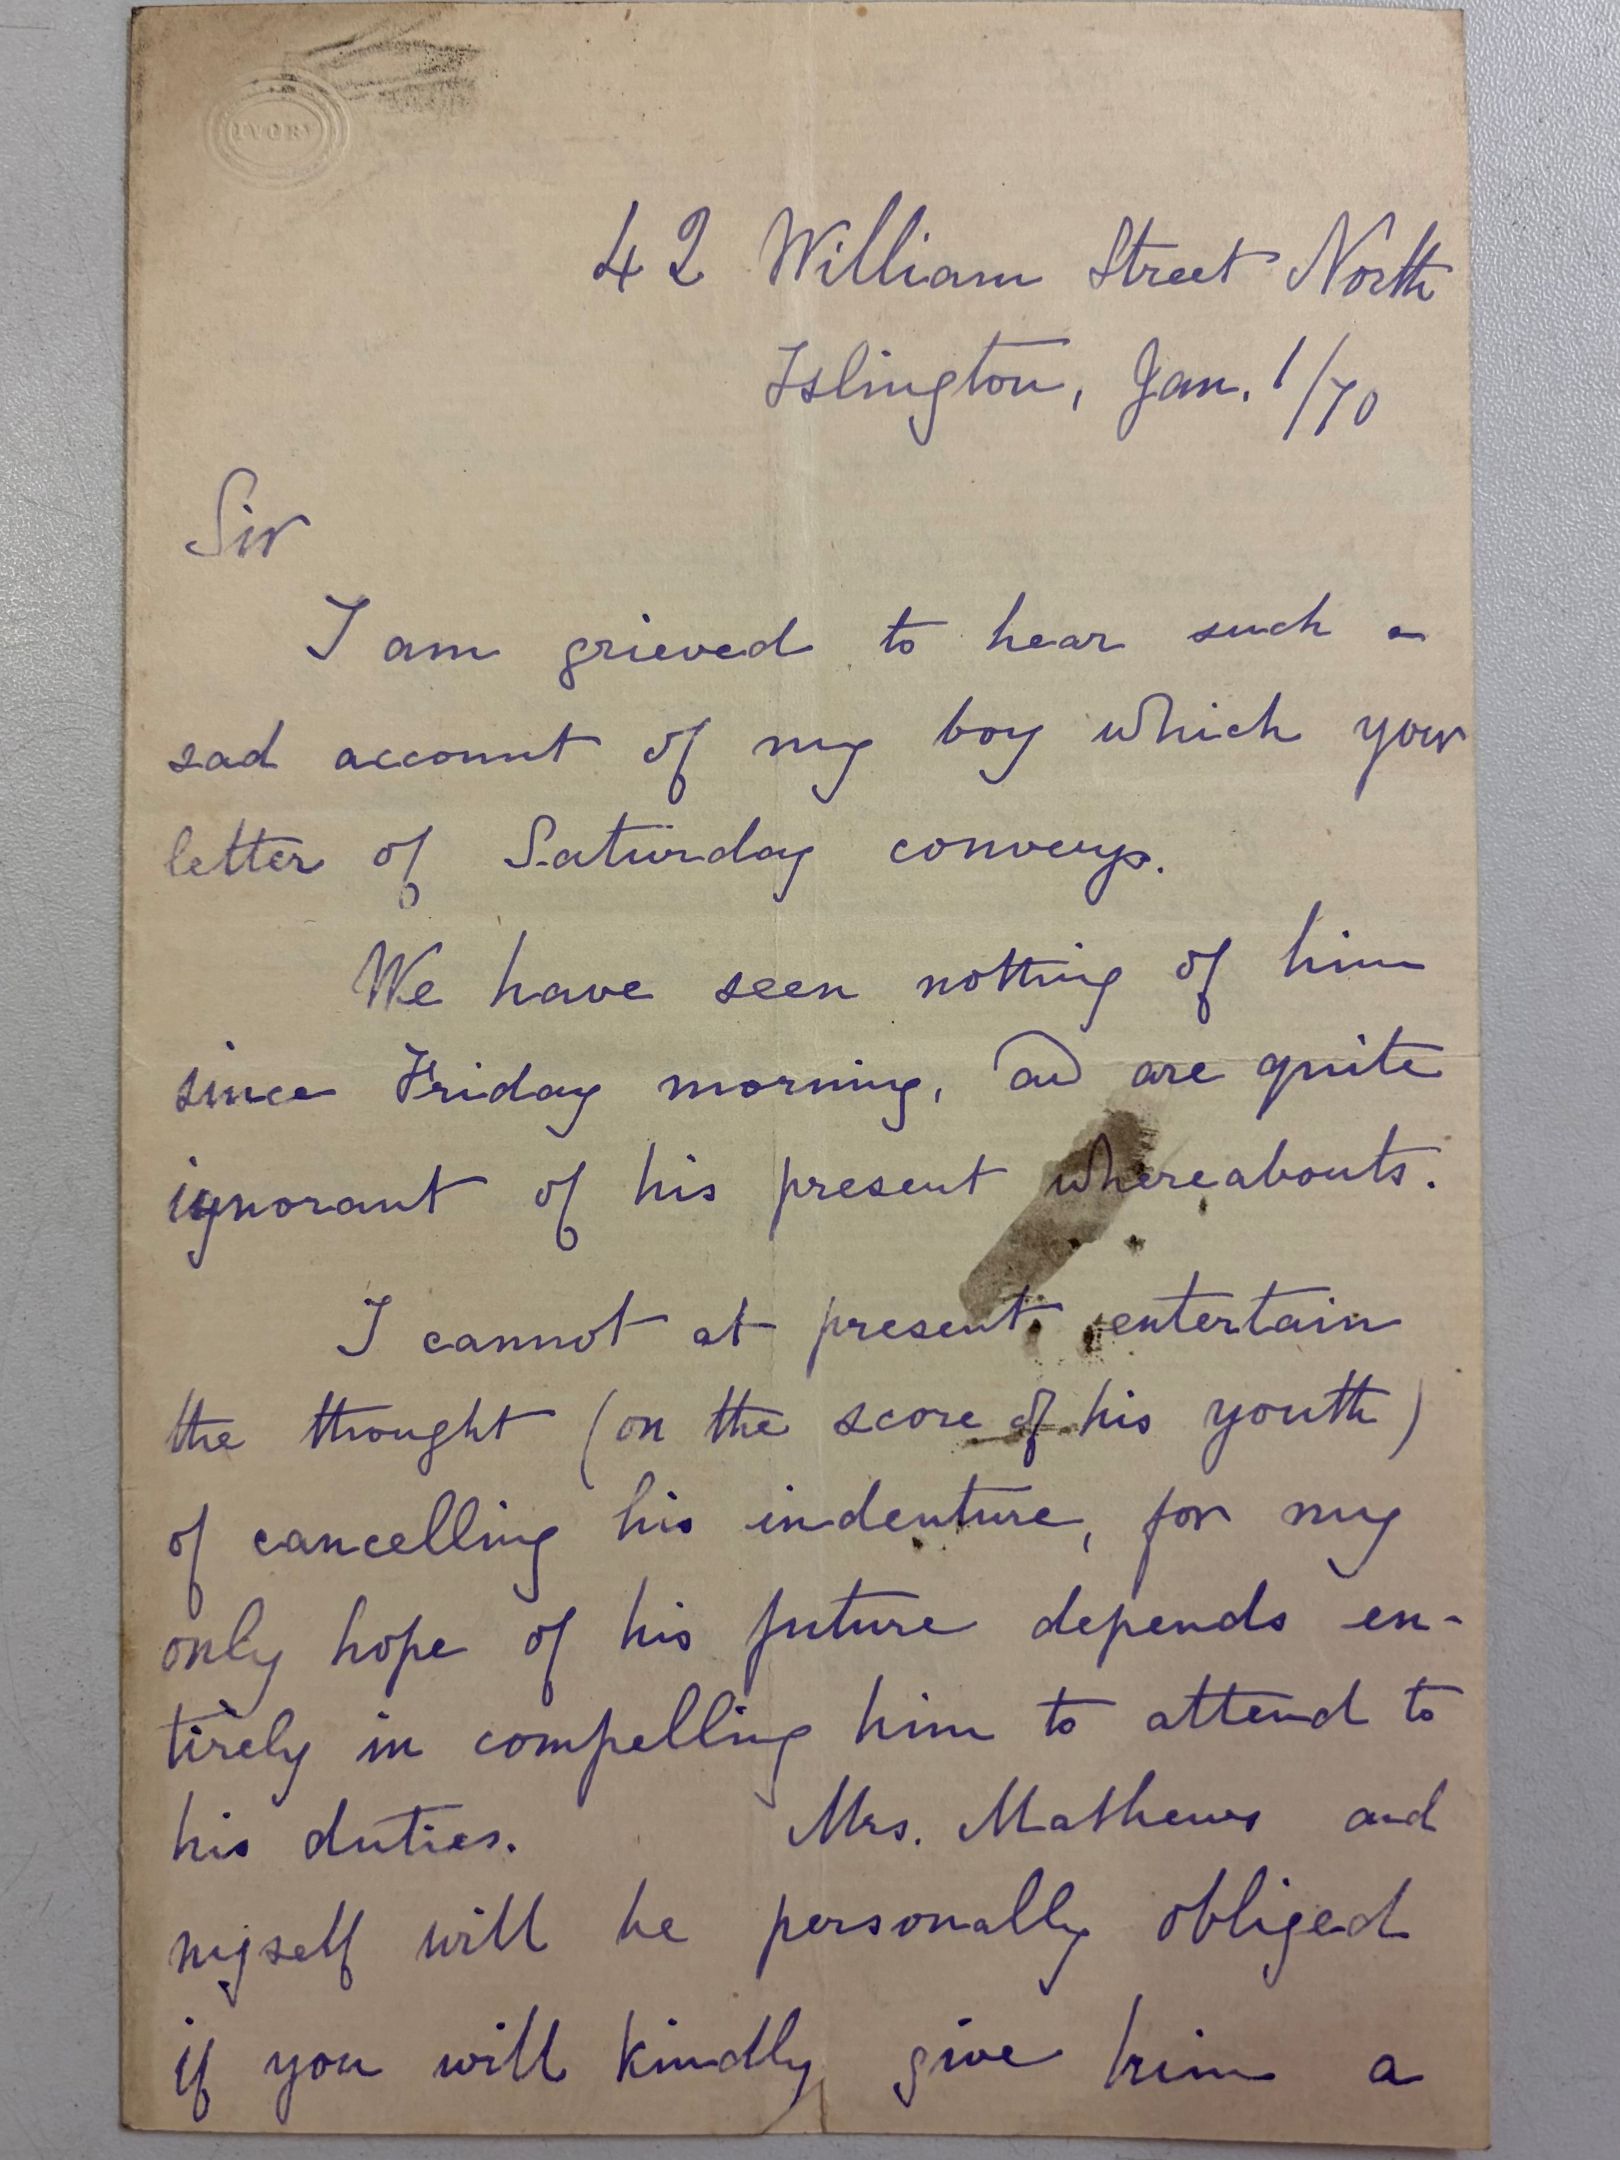 IVORY
42 William Street North
Islington, Jan. 1/70
Sir
I am grieved to hear such a
sad account of my boy which your
letter of Saturday conveys.
We have seen nothing of him
since Friday morning, and are quite
ignorant of his present whereabouts.
I cannot at present entertain
the thought (on the score of his youth)
of cancelling his indenture, for my
only hope of his future depends en-
tirely in compelling him to attend to
his duties. Mrs. Mathews and
myself will be personally obliged
if you will kindly give him a